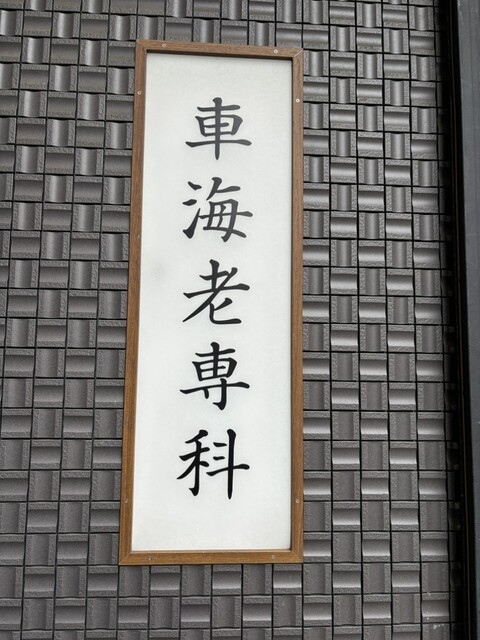 車海老専科